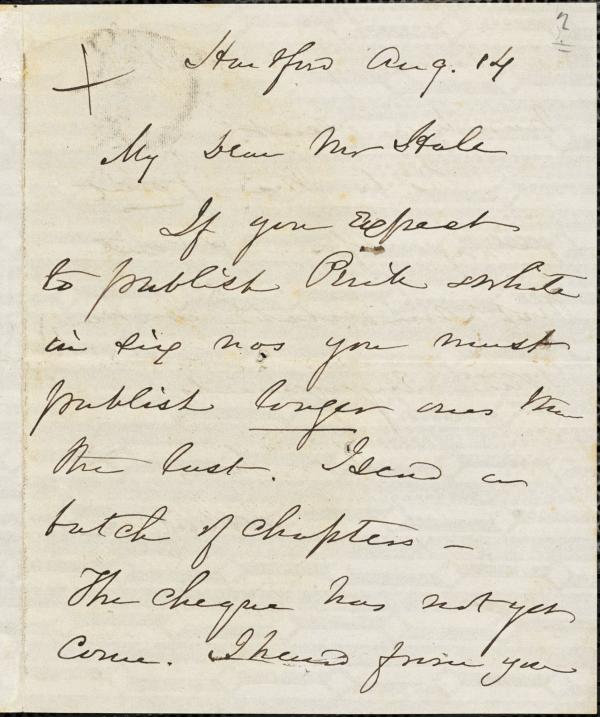 Hartford Aug. 14
My dear Mr Hale
If you expect
to publish Pink & White
in six nos you must
publish longer ones than
the last. I send a
batch of chapters –
The cheque has not yet
come. I heard from you